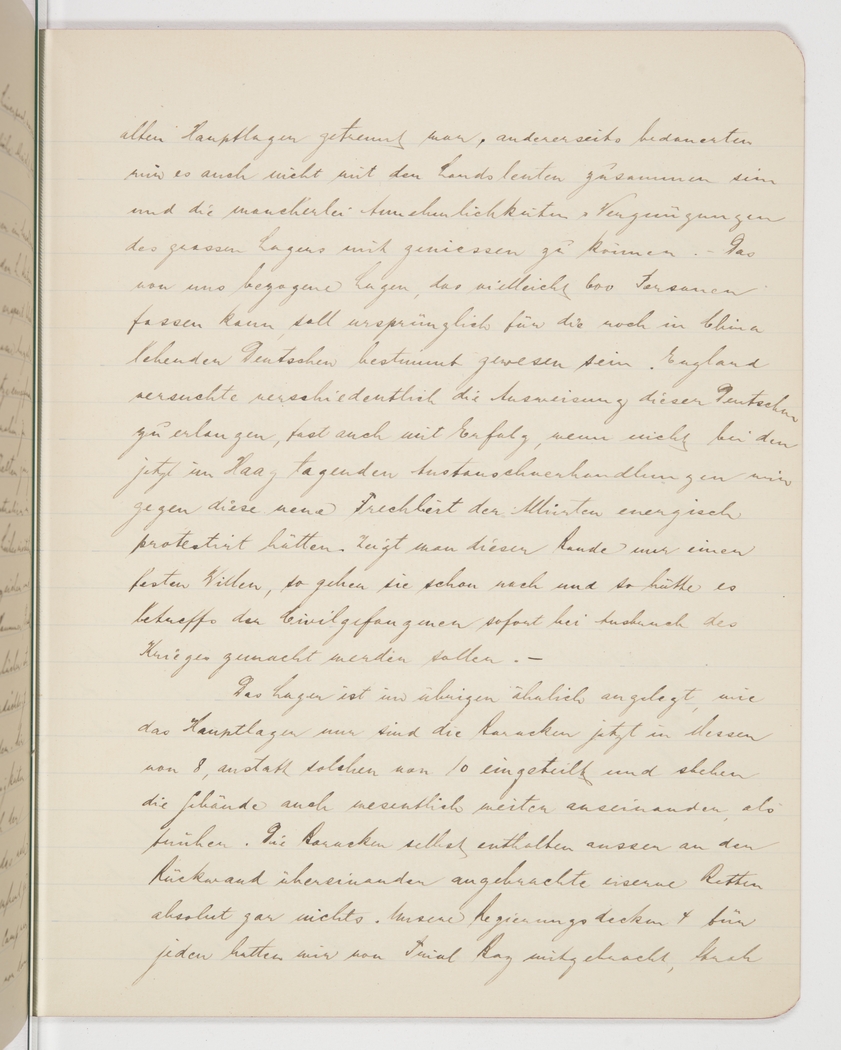 alten Hauptlager getrennt war, andererseits bedauerten
wir es auch nicht mit den Landsleuten zusammen sein
und die mancherlei Annehmlichkeiten & Vergnügungen
des grossen Lagers mit geniessen zu können. - Das
von uns bezogene Lager, das vielleicht 600 Personen
fassen kann, soll ursprünglich für die noch in China
lebenden Deutschen bestimmt gewesen sein. England
versuchte verschiedentlich die Ausweisung dieser Deutschen
zu erlangen, fast auch mit Erfolg, wenn nicht bei den
jetzt im Haag tagenden Austauschverhandlungen wir
gegen diese neue Frechheit der Alliirten energisch
protestirt hätten. Zeigt man dieser Bande nur einen
festen Willen, so geben sie schon nach und so hätte es
betreffs der Civilgefangenen sofort bei Ausbruch des
Krieges gemacht werden sollen. -
Das Lager ist im übrigen ähnlich angelegt, wie
das Hauptlager nur sind die Baracken jetzt in Messen
von 8, anstatt solchen von 10 eingeteilt und stehen
die Gebäude auch wesentlich weiter auseinander, als
früher. Die Baracken selbst enthalten ausser an der
Rückwand übereinander angebrachte eiserne Betten
absolut gar nichts. Unsere Regierungsdecken 4 für
jeden hatten wir von Trial Bay mitgebracht, Stroh